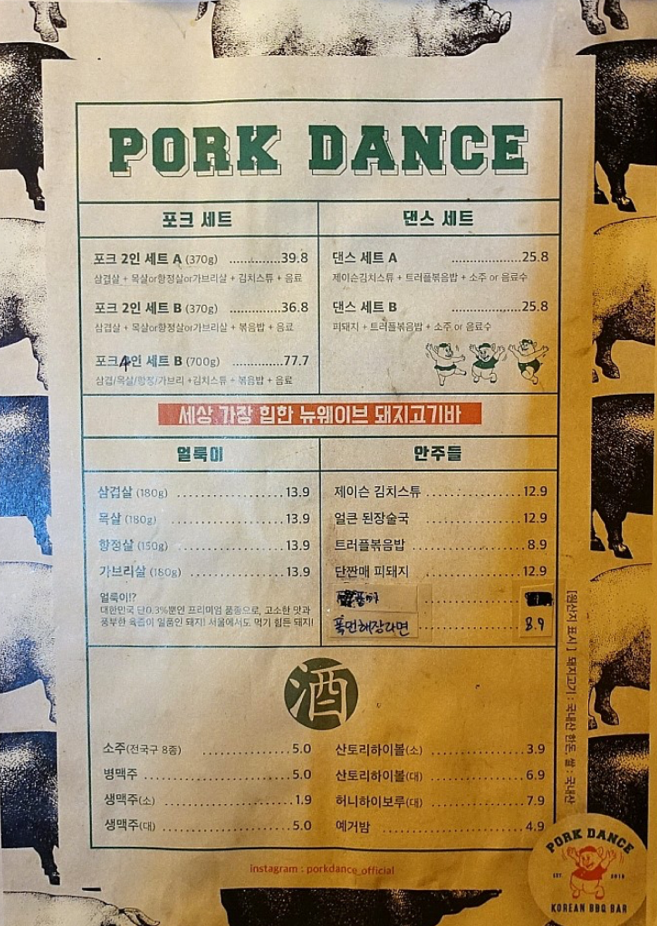 PORK DANCE
포크 세트
포크 2인 세트 A (370g) ..............39.8
삼겹살 + 목살or항정살or가브리살 + 김치스튜 + 음료
포크 2인 세트 B (370g) ..............36.8
삼겹살 + 목살or항정살or가브리살 + 볶음밥 + 음료
포크 4인 세트 B (700g) ..............77.7
삼겹/목살/항정/가브리 +김치스튜 + 볶음밥 + 음료
댄스 세트
댄스 세트 A ....................25.8
제이슨김치스튜 + 트러플볶음밥 + 소주 or 음료수
댄스 세트 B ....................25.8
피돼지 + 트러플볶음밥 + 소주 or 음료수
세상 가장 힙한 뉴웨이브 돼지고기바
얼룩이
삼겹살 (180g) ........................13.9
목살 (180g) ........................13.9
항정살 (150g) ........................13.9
가브리살 (180g) .....................13.9
얼룩이!?
대한민국 단0.3%뿐인 프리미엄 품종으로, 고소한 맛과
풍부한 육즙이 일품인 돼지! 서울에서도 먹기 힘든 돼지!
안주들
제이슨 김치스튜 ....................12.9
얼큰 된장술국 ....................12.9
트러플볶음밥 ....................8.9
단짠매 피돼지 ....................12.9
폭먼해장라면 8.9
酒
소주(전국구 8종) ....................5.0
병맥주 ....................5.0
생맥주(소) ....................1.9
생맥주(대) ....................5.0
산토리하이볼(소) ....................3.9
산토리하이볼(대) ....................6.9
허니하이보루(대) ....................7.9
예거밤 ....................4.9
[원산지 표시] 돼지고기 : 국내산 한돈, 쌀 : 국내산
instagram : porkdance_official
PORK DANCE
EST. 2018
KOREAN BBQ BAR